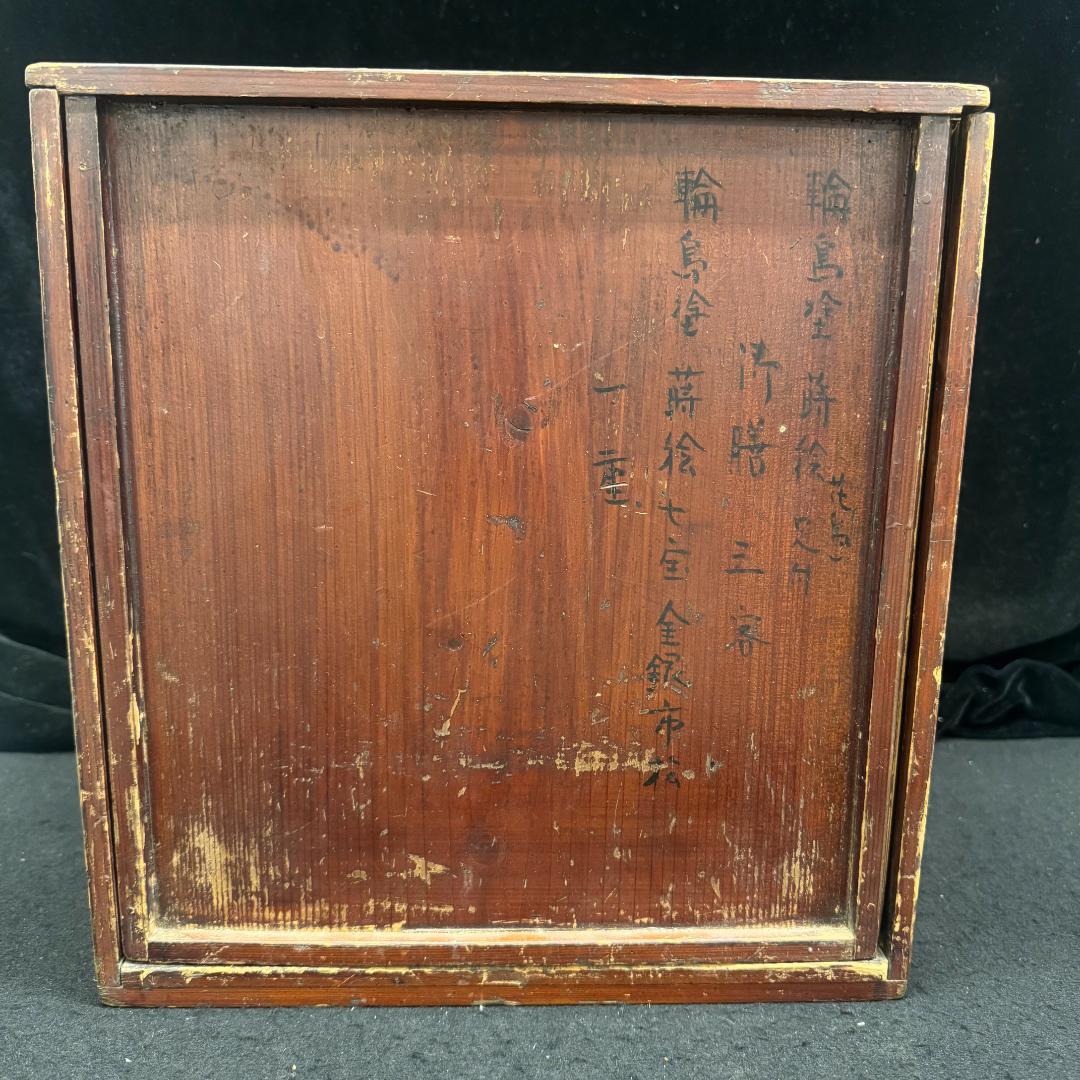 輪島塗 蒔絵 花鳥 足付
御膳 三客
輪島塗 蒔絵 七宝 金銀市松
一座